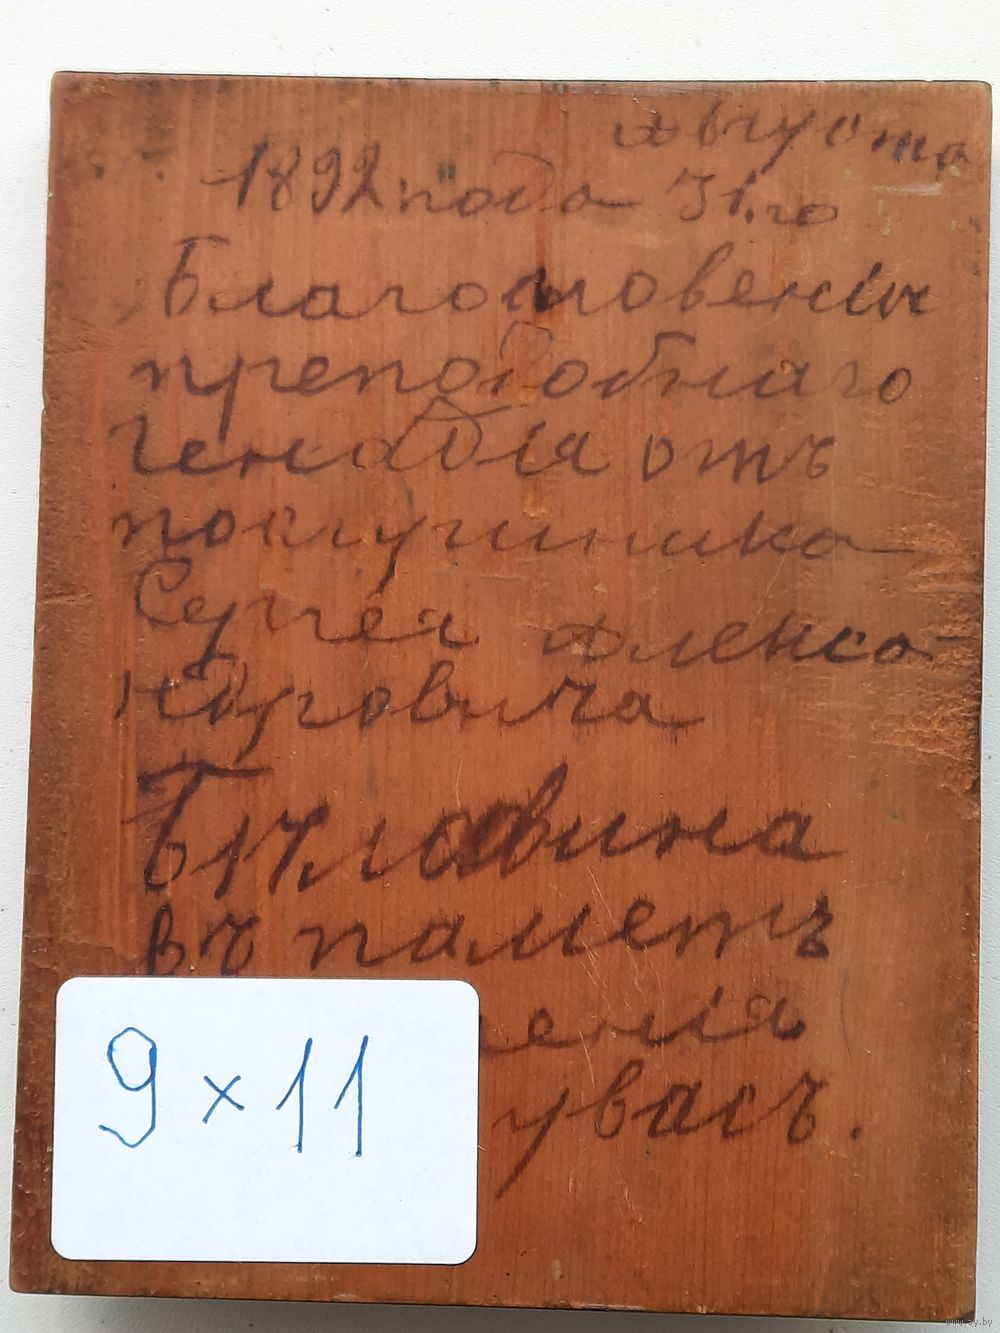 Августа
1892 года 31.го
Благословеніи
преподобнаго
Генадія отъ
послушника
Сергея Алекса-
ндровича
Бѣловина
въ паметъ
еніа
у васъ.
9 x 11